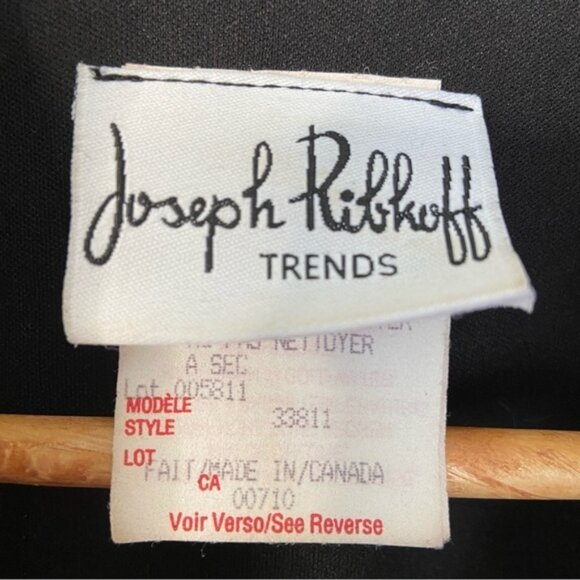 Joseph Ribkoff
TRENDS
NETTOYER
A SEC
Lot 005811
MODÈLE
STYLE 33811
LOT
FAIT/MADE IN/CANADA
CA
00710
Voir Verso/See Reverse